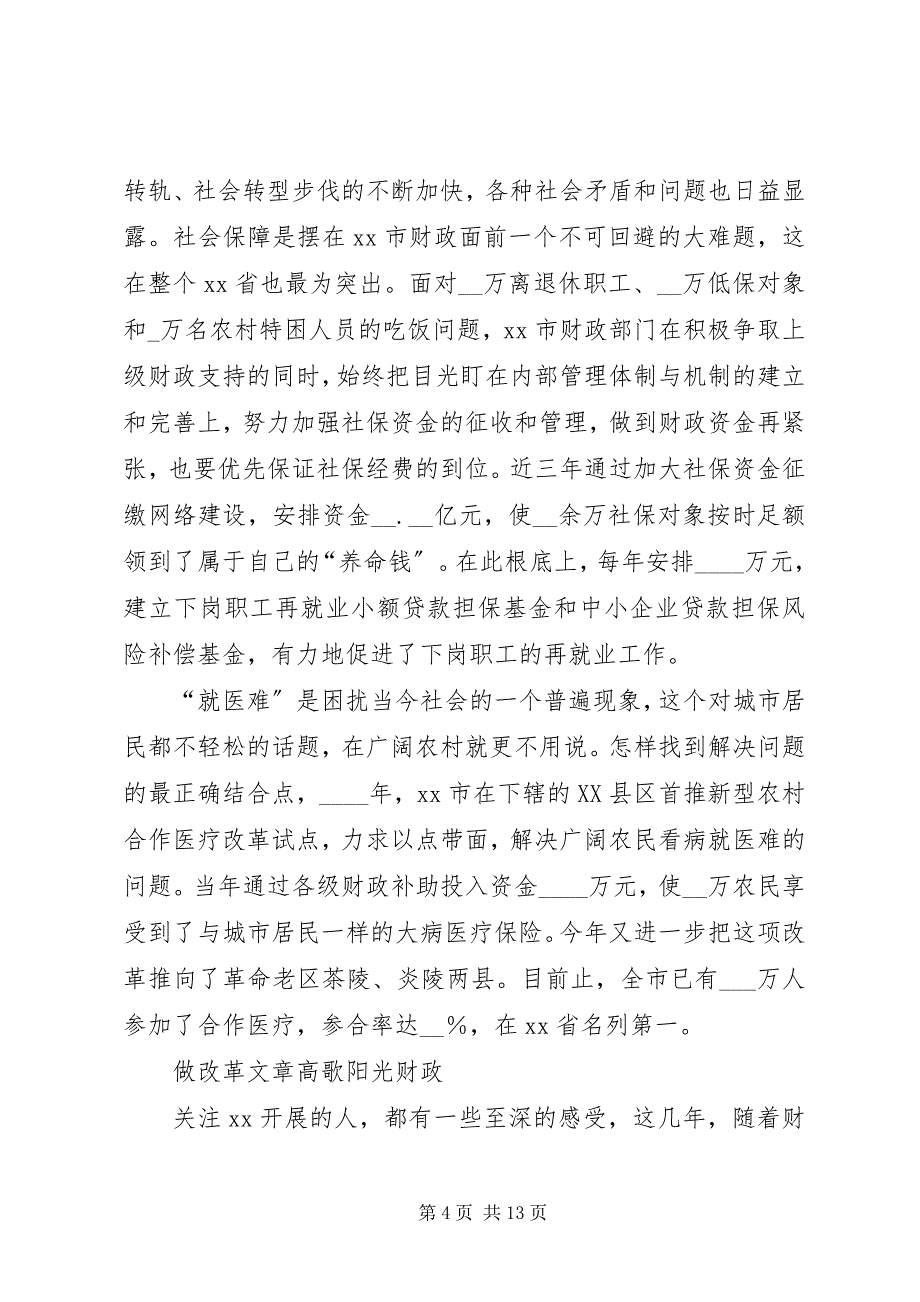 转轨、社会转型步伐的不断加快，各种社会矛盾和问题也日益显
露。社会保障是摆在 xx 市财政面前一个不可回避的大难题，这
在整个 xx 省也最为突出。面对__万离退休职工、__万低保对象
和_万名农村特困人员的吃饭问题，xx 市财政部门在积极争取上
级财政支持的同时，始终把目光盯在内部管理体制与机制的建立
和完善上，努力加强社保资金的征收和管理，做到财政资金再紧
张，也要优先保证社保经费的到位。近三年通过加大社保资金征
缴网络建设，安排资金__.__亿元，使__余万社保对象按时足额
领到了属于自己的“养命钱〞。在此根底上，每年安排____万元，
建立下岗职工再就业小额贷款担保基金和中小企业贷款担保风
险补偿基金，有力地促进了下岗职工的再就业工作。
“就医难〞是困扰当今社会的一个普遍现象，这个对城市居
民都不轻松的话题，在广阔农村就更不用说。怎样找到解决问题
的最正确结合点，____年，xx 市在下辖的 XX 县区首推新型农村
合作医疗改革试点，力求以点带面，解决广阔农民看病就医难的
问题。当年通过各级财政补助投入资金____万元，使__万农民享
受到了与城市居民一样的大病医疗保险。今年又进一步把这项改
革推向了革命老区茶陵、炎陵两县。目前止，全市已有___万人
参加了合作医疗，参合率达__%，在 xx 省名列第一。
做改革文章高歌阳光财政
关注 xx 开展的人，都有一些至深的感受，这几年，随着财
第 4 页 共 13 页